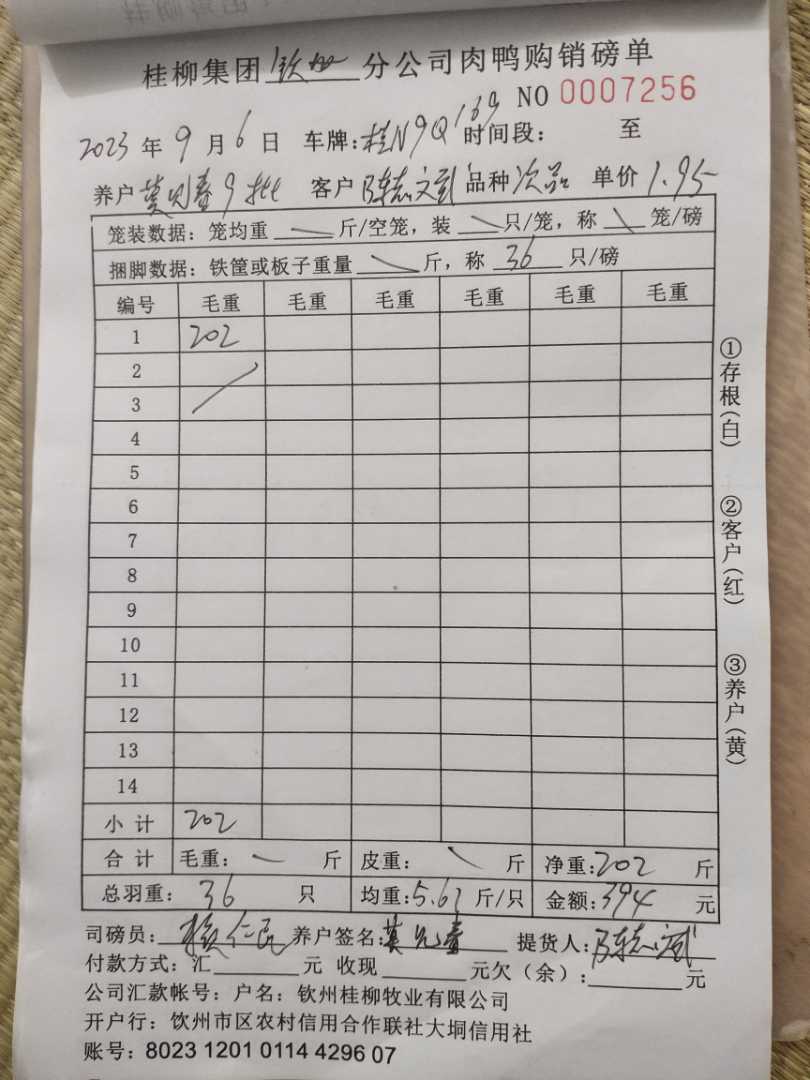 桂柳集团 钦州 分公司肉鸭购销磅单
NO 0007256
2023 年 9 月 6 日 车牌:桂N9Q169 时间段: 至
养户 莫兄春9批 客户 陈志斌 品种 次品 单价 1.95
笼装数据: 笼均重 斤/空笼, 装 只/笼, 称 笼/磅
捆脚数据: 铁筐或板子重量 斤, 称 36 只/磅
编号 毛重 毛重 毛重 毛重 毛重 毛重
1 202
2
3
4
5
6
7
8
9
10
11
12
13
14
小计 202
合计 毛重: 斤 皮重: 斤 净重:202 斤
总羽重: 36 只 均重:5.61 斤/只 金额:394 元
司磅员: 仁民 养户签名:莫兄春 提货人:陈志斌
付款方式: 汇 元 收现 元欠(余): 元
公司汇款帐号: 户名: 钦州桂柳牧业有限公司
开户行: 钦州市区农村信用合作联社大垌信用社
账号: 8023 1201 0114 4296 07
①存根(白)
②客户(红)
③养户(黄)